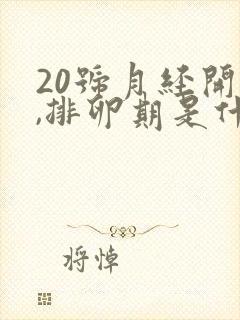 20號月經開
,排卵期是什
將悼